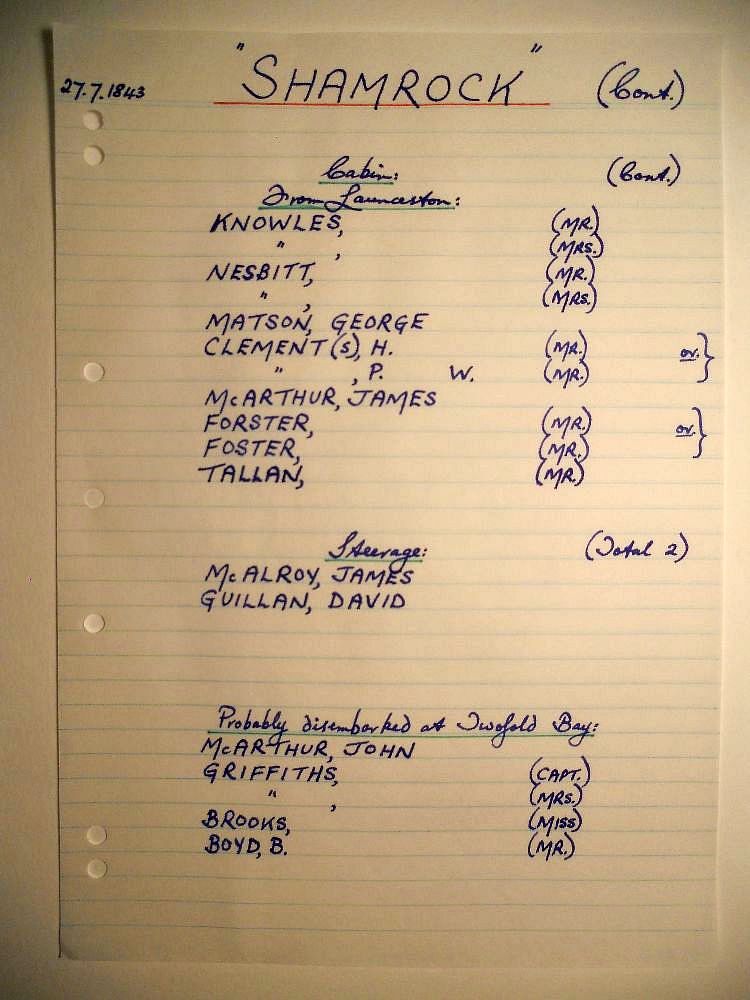 27.7.1843 "SHAMROCK" (Cont.)
Cabin: (Cont.)
From Launceston:
KNOWLES, (MR.)
" , (MRS.)
NESBITT, (MR.)
" , (MRS.)
MATSON, GEORGE
CLEMENT(S), H. (MR.) or. }
" , P. W. (MR.)
McARTHUR, JAMES
FORSTER, (MR.) or. }
FOSTER, (MR.)
TALLAN, (MR.)
Steerage: (Total 2)
McALROY, JAMES
GUILLAN, DAVID
Probably disembarked at Twofold Bay:
McARTHUR, JOHN
GRIFFITHS, (CAPT.)
" , (MRS.)
BROOKS, (MISS)
BOYD, B. (MR.)